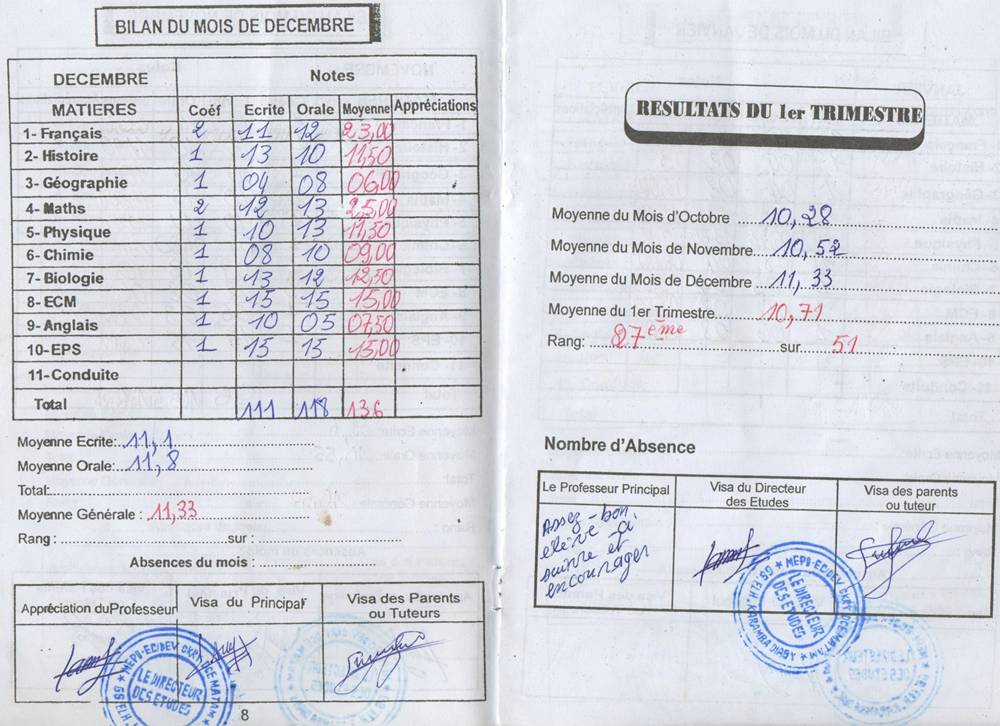 BILAN DU MOIS DE DECEMBRE
DECEMBRE Notes
MATIERES Coéf Ecrite Orale Moyenne Appréciations
1- Français 2 11 12 23,00
2- Histoire 1 13 10 11,50
3- Géographie 1 04 08 06,00
4- Maths 2 12 13 25,00
5- Physique 1 10 13 11,30
6- Chimie 1 08 10 09,00
7- Biologie 1 13 12 12,50
8- ECM 1 15 15 15,00
9- Anglais 1 10 05 07,50
10- EPS 1 15 15 15,00
11- Conduite
Total 111 118 136
Moyenne Ecrite: 11,1
Moyenne Orale: 11,8
Total:
Moyenne Générale : 11,33
Rang : sur :
Absences du mois :
Appréciation du Professeur Visa du Principal Visa des Parents ou Tuteurs
LE DIRECTEUR
DES ETUDES
8
RESULTATS DU 1er TRIMESTRE
Moyenne du Mois d'Octobre 10,28
Moyenne du Mois de Novembre 10,52
Moyenne du Mois de Décembre 11,33
Moyenne du 1er Trimestre 10,71
Rang: 27ème sur 51
Nombre d'Absence
Le Professeur Principal Visa du Directeur des Etudes Visa des parents ou tuteur
Assez-bon,
élève à
suivre et
encourager
LE DIRECTEUR
DES ETUDES